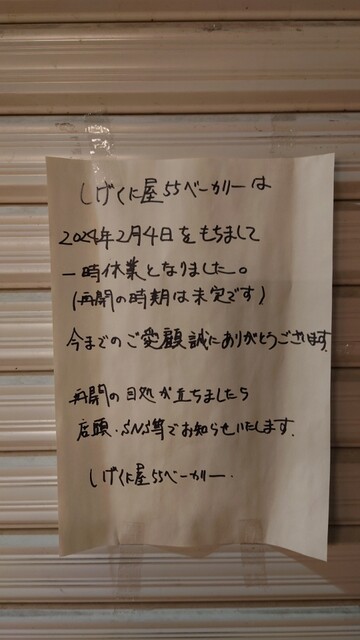 しげくに屋55ベーカリーは
2024年2月4日をもちまして
一時休業となりました。
(再開の時期は未定です)
今までのご愛顧誠にありがとうございます.
再開の目処が立ちましたら
店頭・SNS等でお知らせいたします.
しげくに屋55ベーカリー.